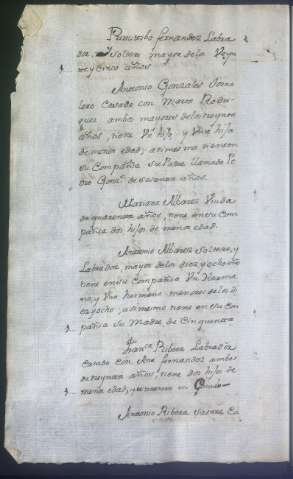 fernandez Labra
dor, soltero mayor de los Veyn
te y cinco años
Antonio Gonzales Jorna
lero Casado con Maria Rodri
guez ambos mayores de los treynta
años, tiene Un hijo, y Una hija
de menor edad; asimesmo tiene en
su Compañia Su Padre llamado Pe
dro Gonz.s de sesenta años.
Mariana Albares Viuda
de quarenta años, tiene en su Com
pañia dos hijos de menor edad.
Antonio Albares Soltero, y
Labrador mayor de los diez y ocho años
tiene en su Compañia Una Herma
na, y Un hermano menores de los di
ez y ocho; asimesmo tiene en su Com
pañia Su Madre de Cinquenta
Fran.co Ribera Labrador
Casado con Ana fernandez ambos
de treynta años, tiene dos hijos de
menor edad,
Antonio Ribera